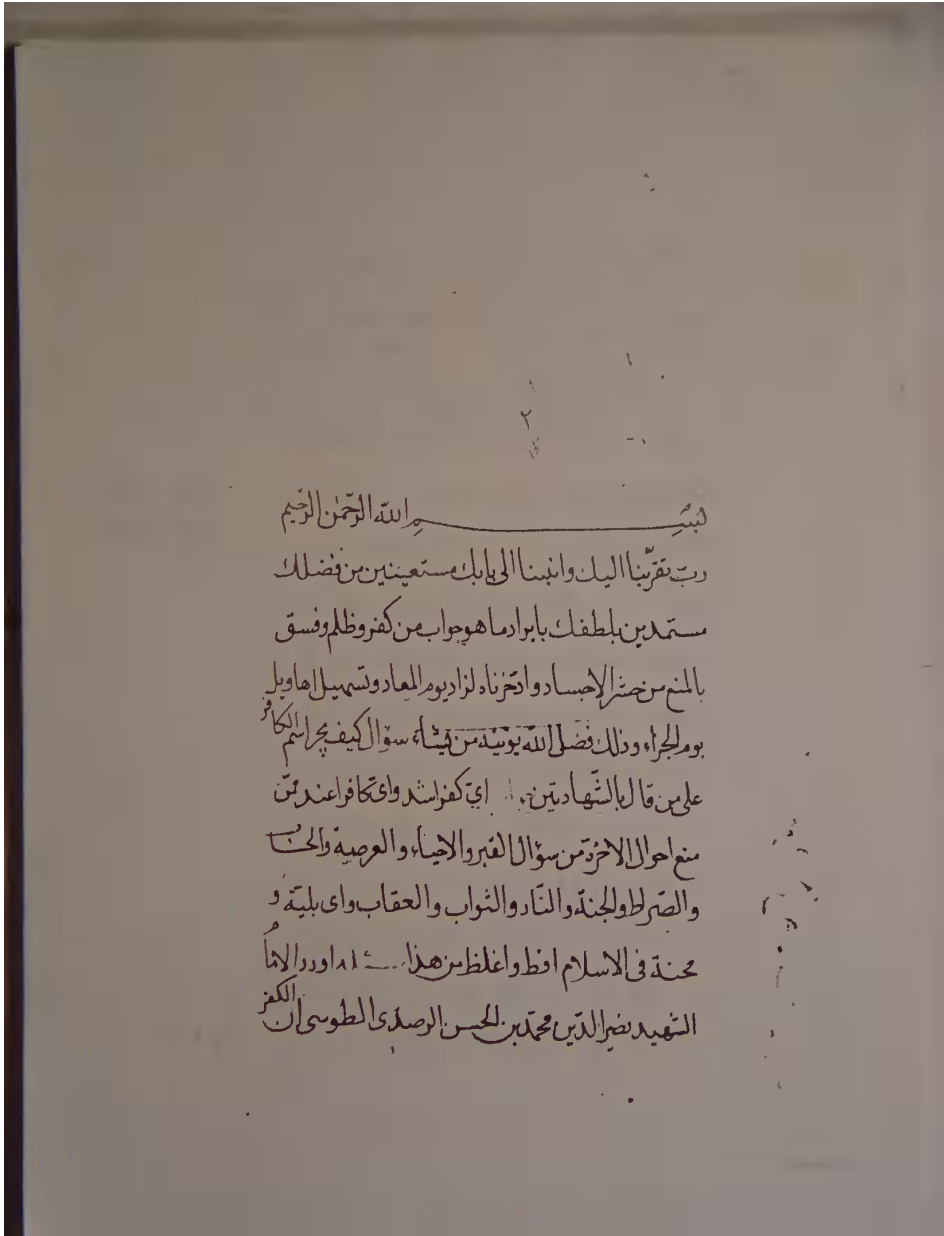 ٢
بسم الله الرحمن الرحيم
رب تقربنا اليك وانبنا الى بابك مستعينين من فضلك
مستمدين بلطفك بايراد ما هو جواب من كفر وظلم وفسق
بالمنع من حشر الاجساد وادخرناه لزاد يوم المعاد وتسهيل اهاويل
يوم الجزاء وذلك فضل الله يؤتيه من يشاء سؤال كيف يجر اسم الكافر
على من قال بالشهادتين اي كفر اشد واي كافر اعند ممن
منع احوال الاخرة من سؤال القبر والاحياء والعرصة والحساب
والصراط والجنة والنار والثواب والعقاب واي بلية و
محنة في الاسلام افظ واغلظ من هذا اورد الامام
الشهيد نصير الدين محمد بن الحسن الرصدى الطوسى ان الكفر